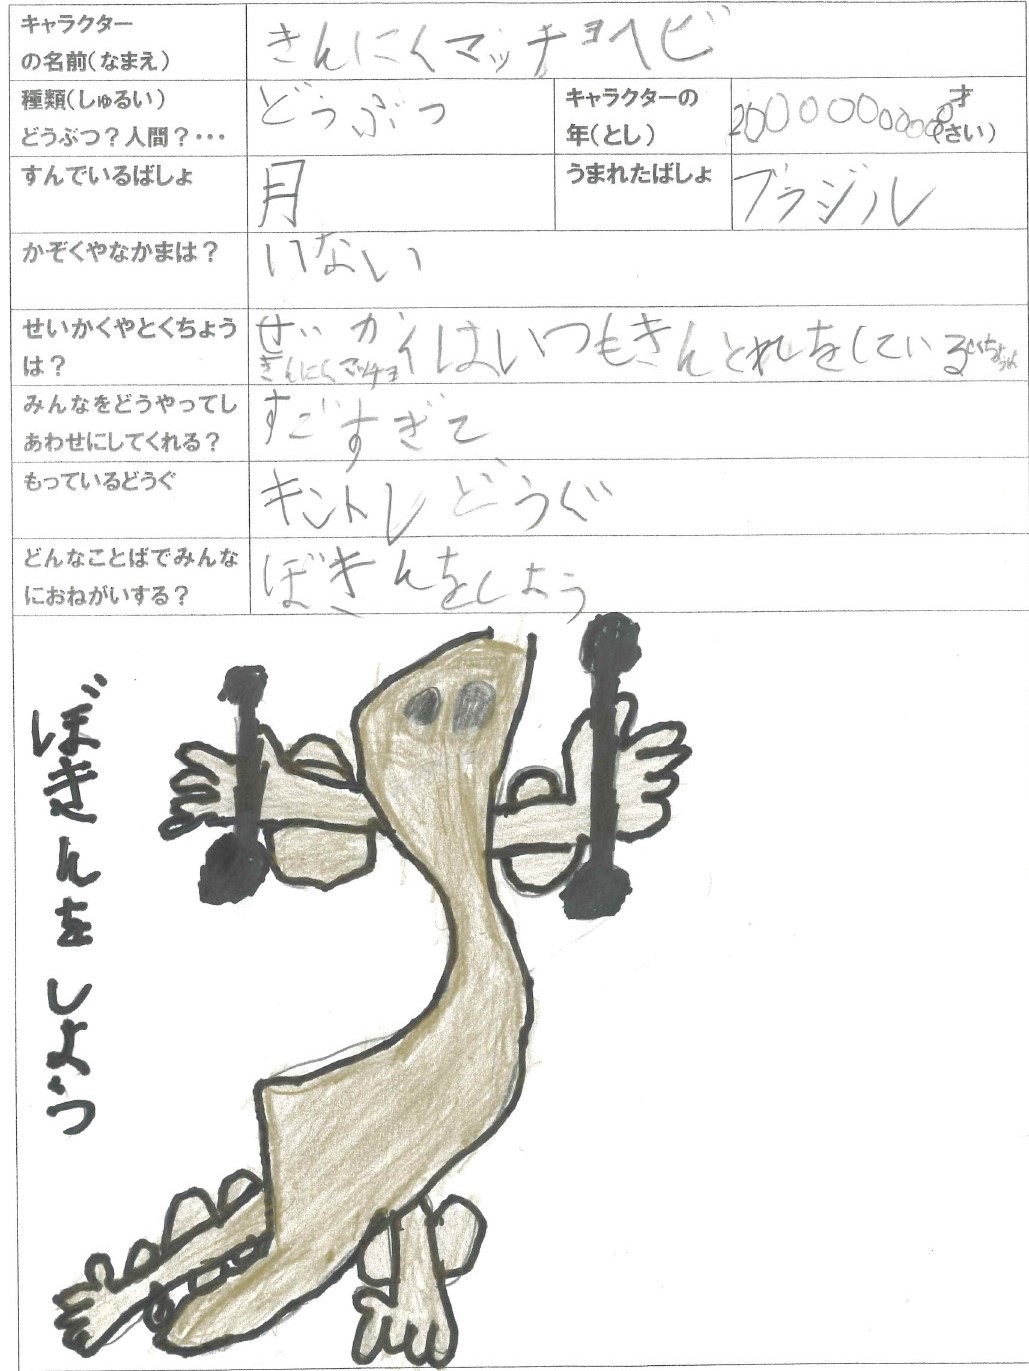 キャラクター
の名前(なまえ)
きんにくマッチョヘビ
種類(しゅるい)
どうぶつ?人間?・・・
どうぶつ
キャラクターの
年(とし)
才
(さい)
すんでいるばしょ
月
うまれたばしょ
ブラジル
かぞくやなかまは?
いない
せいかくやとくちょう
は?
せいカイはいつもきんとれをしている
とくちょうは
きんにくマッチョ
みんなをどうやってし
あわせにしてくれる?
すごすぎて
もっているどうぐ
キントレどうぐ
どんなことばでみんな
におねがいする?
ぼきんをしよう
ぼきんをしよう